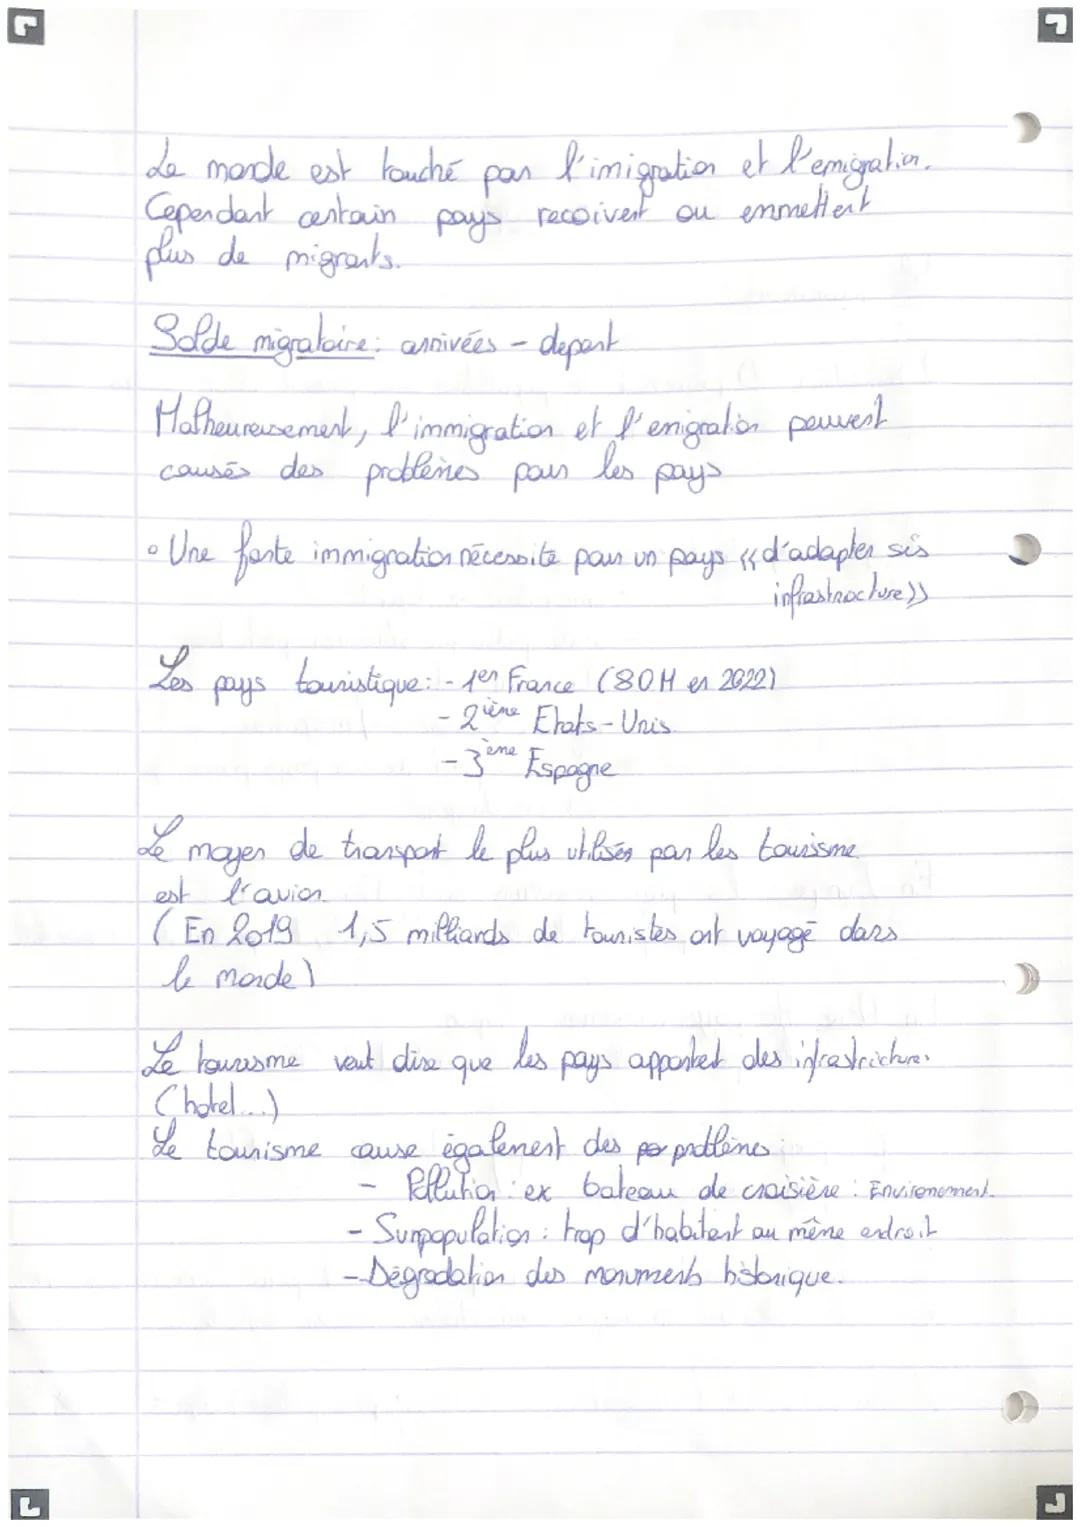 Le monde est touché par l'imigration et l'emigration.
Cependant certain pays recoivent ou emmettent
plus de migrants.
Solde migratoire : arrivées - depart
Malheureusement, l'immigration et l'emigration peuvent
causés des problèmes pour les pays
° Une forte immigration nécessite pour un pays « d'adapter ses
infrastructure »
Les pays touristique : - 1er France (80M en 2022)
- 2ième Etats-Unis
- 3ème Espagne
Le moyen de transport le plus utilisés par les tourisme
est l'avion.
( En 2019 1,5 milliards de touristes ont voyagé dans
le monde )
Le tourisme veut dire que les pays apportent des infrastrictures
( hotel ... )
Le tourisme cause également des problèmes :
- Pollution : ex bateau de croisière : Environement.
- Surpopulation : trop d'habitent au même endroit
- Dégradation des monuments historique.